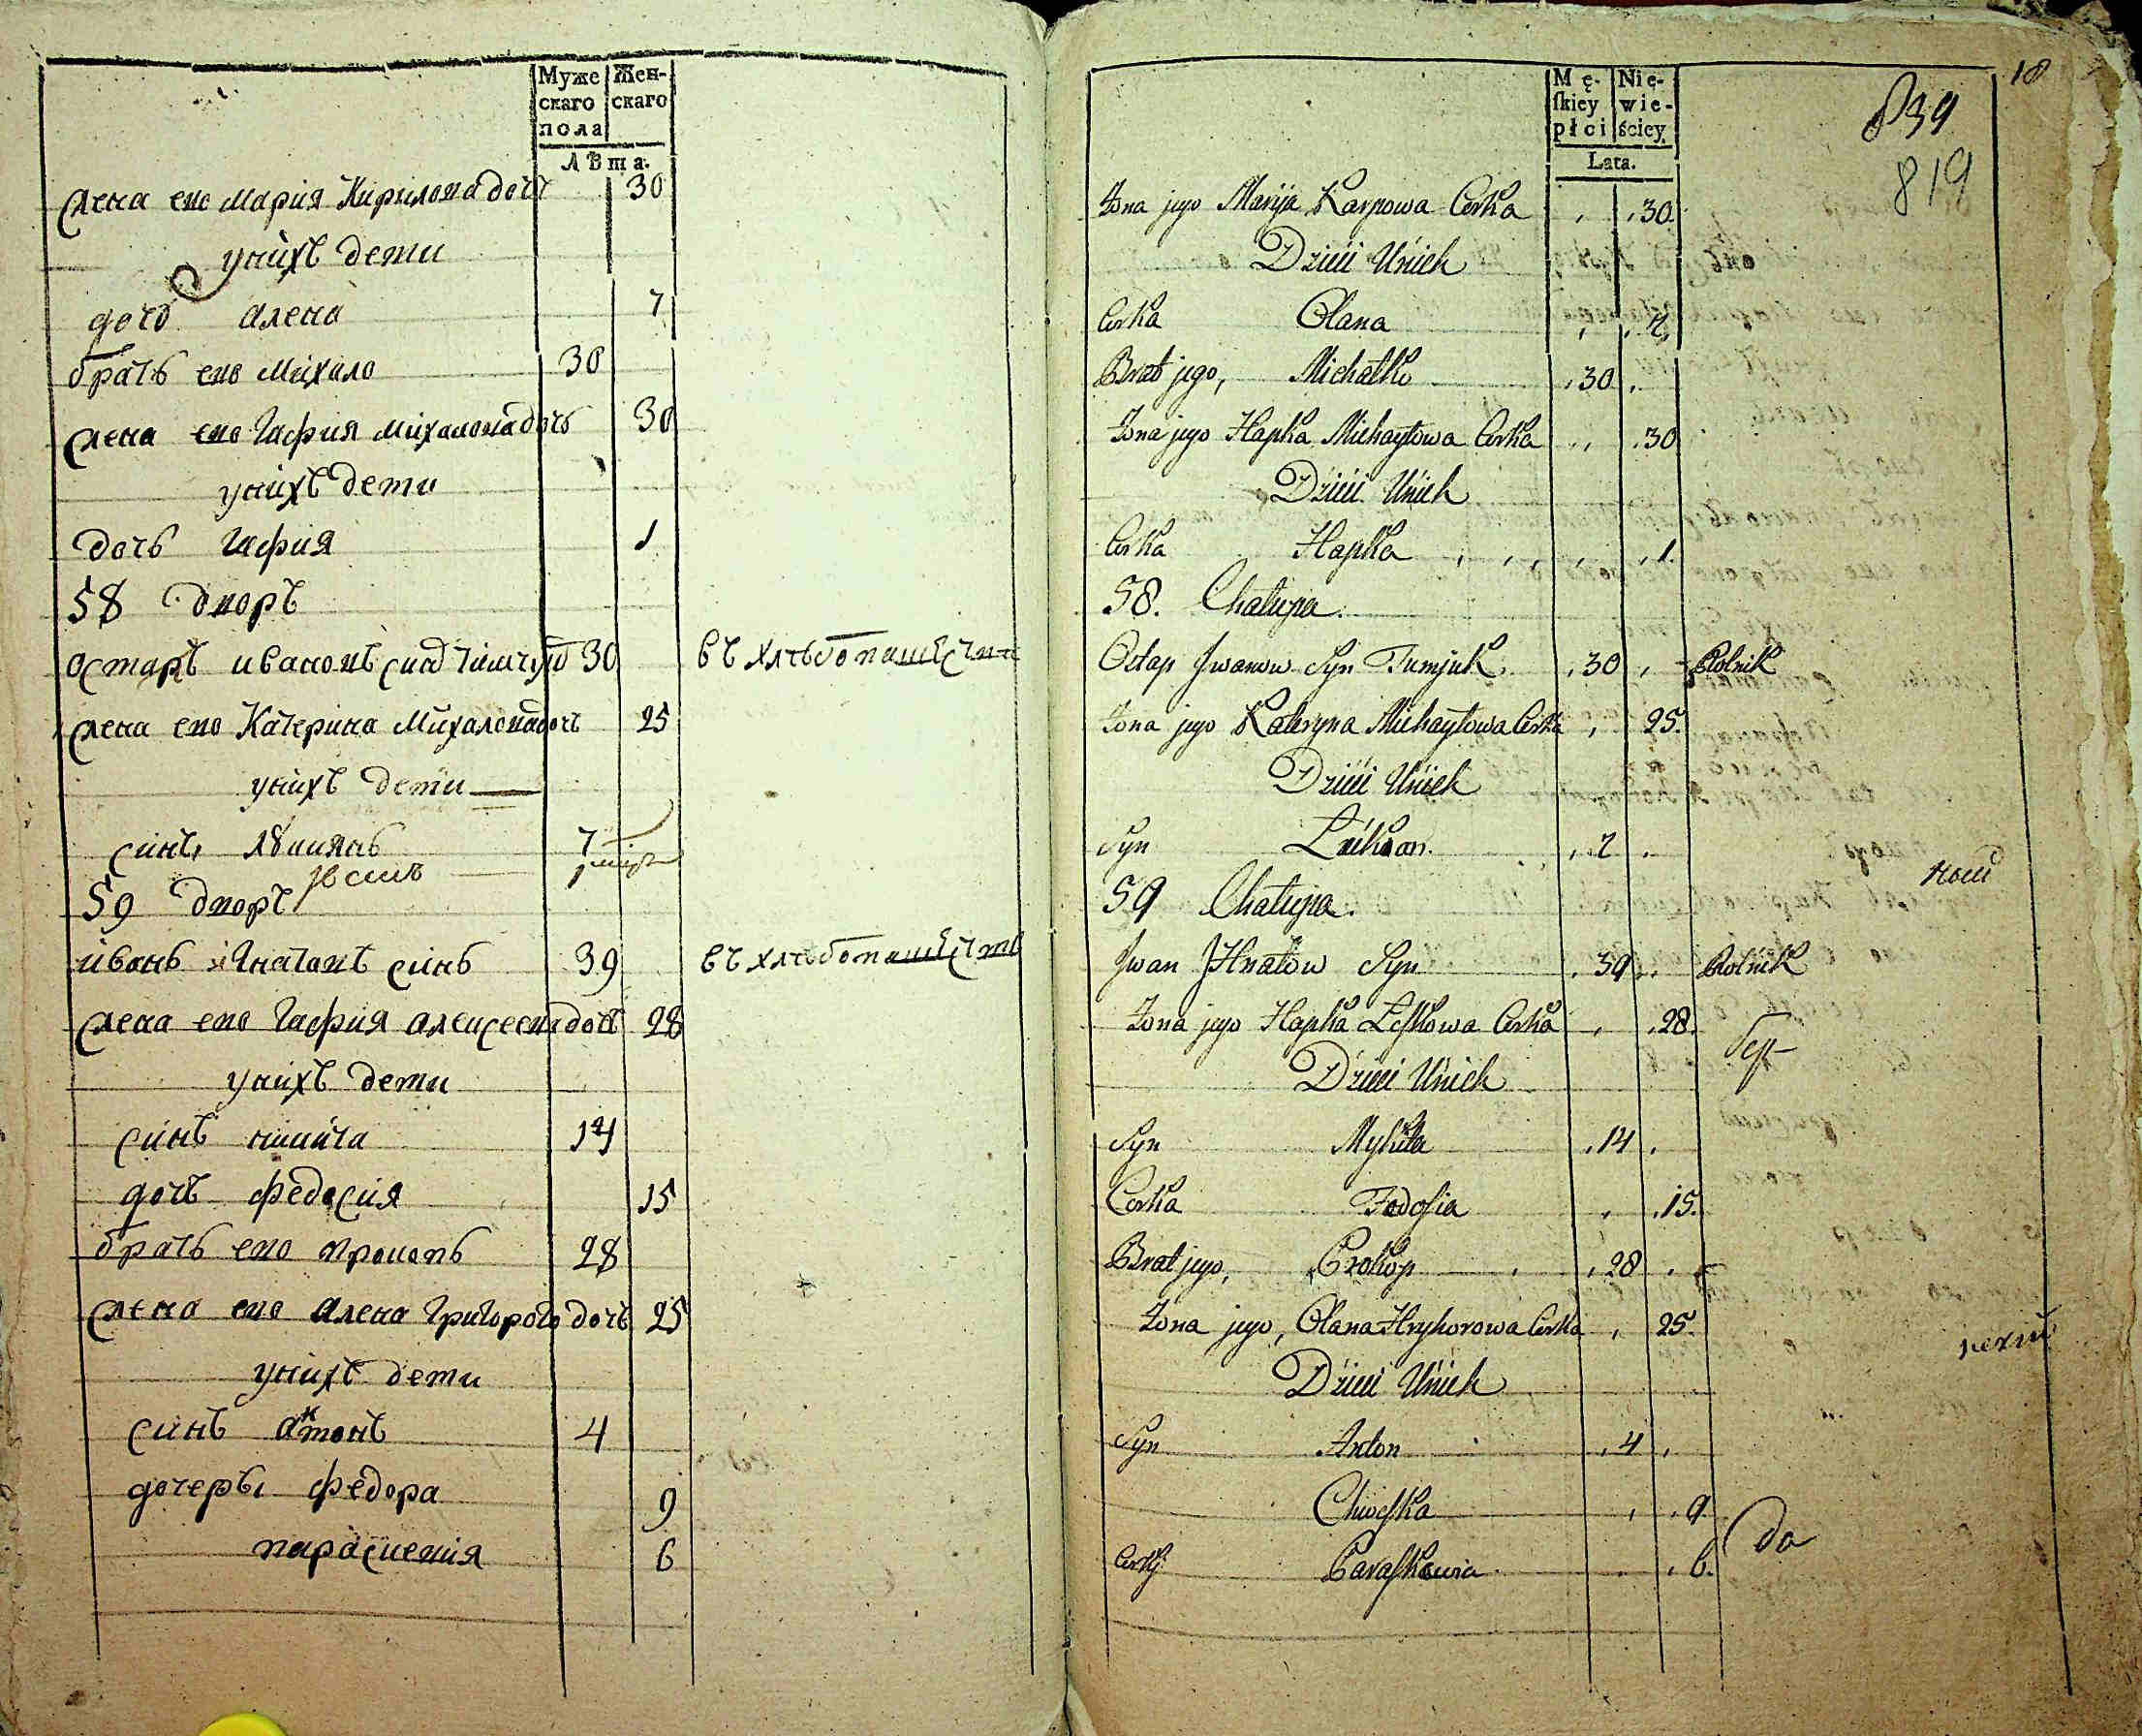 Муже
скаго
пола
Жен-
скаго
Лѣта.
жена ево Мария Кирилова дочь 30
у нихъ дети
дочь Алена 7
братъ ево Михало 30
жена ево Гафия Михалова дочь 30
у нихъ дети
дочь Гафия 1
58 дворъ
Остапъ Ивановъ синъ 30 въ хлѣбопашествѣ
жена ево Катерина Михалова дочь 25
у нихъ дети
синъ Лукиянъ 7
1
59 дворъ
Иванъ Игнатовъ синъ 39 въ хлѣбопашествѣ
жена ево Гафия Алексеева дочь 28
у нихъ дети
синъ Никита 14
дочь Федосия 15
братъ ево Прокопъ 28
жена ево Алена Григорова дочь 25
у нихъ дети
синъ Антонъ 4
дочеры Федора 9
Параскевия 6
18
839
819
Mę-
skiey
płci
Nie-
wie-
ściey
Lata.
Żona jego Maryja Karpowa Corka 30
Dzieci U nich
Corka Ołana 7
Brat jego, Michałko 30
Żona jego Hapka Michayłowa Corka 30
Dzieci U nich
Corka Hapka 1.
58. Chałupa.
Ostap Jwanow Syn Tumjuk 30 Rolnik
Żona jego Kateryna Michayłowa Corka 25.
Dzieci U nich
Syn Łukian. 7
59 Chałupa.
Jwan JHnatow Syn 39 Rolnik
Żona jego Hapka Leskowa Corka 28.
Dzieci U nich
Syn Mykita 14
Corka Fedosia 15.
Brat jego, Prokop 28
Żona jego, Ołana Hryhorowa Corka 25.
Dzieci U nich
Syn Anton 4
Chweska 9
Corky Paraskewia 6.
до